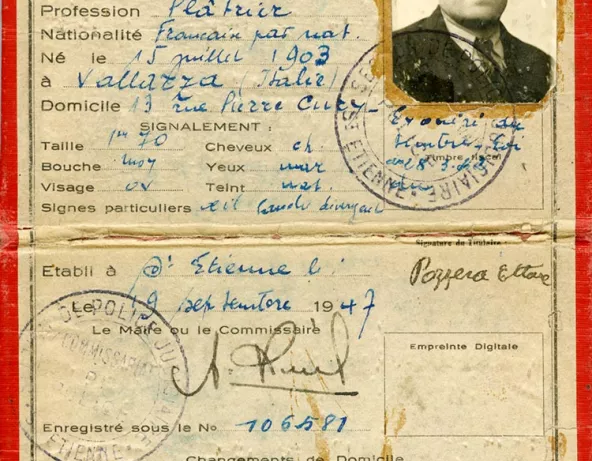 Profession Plâtrier
Nationalité Française par nat.
Né le 15 juillet 1903
à Vallazza (Italie)
Domicile 13 rue Pierre Curie
SIGNALEMENT :
Taille 1m 70 Cheveux ch.
Bouche moy Yeux mar
Visage ov Teint nat.
Signes particuliers œil gauche divergent
Exonéré du
timbre
Timbre fiscal
Signature du Titulaire :
Pozzera Ettore
Etabli à St Etienne
Le 9 septembre 1947
Le Maire ou le Commissaire
Empreinte Digitale
DE POLICE JU
COMMISSARIAT
ETIENNE
Enregistré sous le No 106581
Changements de Domicile